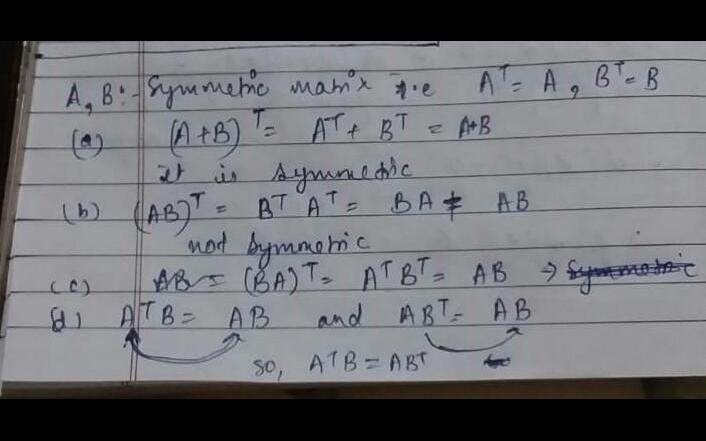 A, B :- Symmetric matrix i.e A^T = A, B^T = B
(a) (A+B)^T = A^T + B^T = A+B
it is symmetric
(b) (AB)^T = B^T A^T = BA ≠ AB
not symmetric
(c) AB = (BA)^T = A^T B^T = AB → Symmetric
(d) A^T B = AB and AB^T = AB
so, A^T B = AB^T